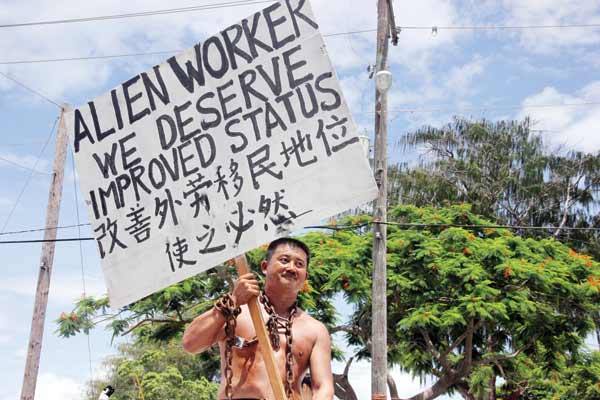 ALIEN WORKER
WE DESERVE
IMPROVED STATUS
改善外劳移民地位
使之必然